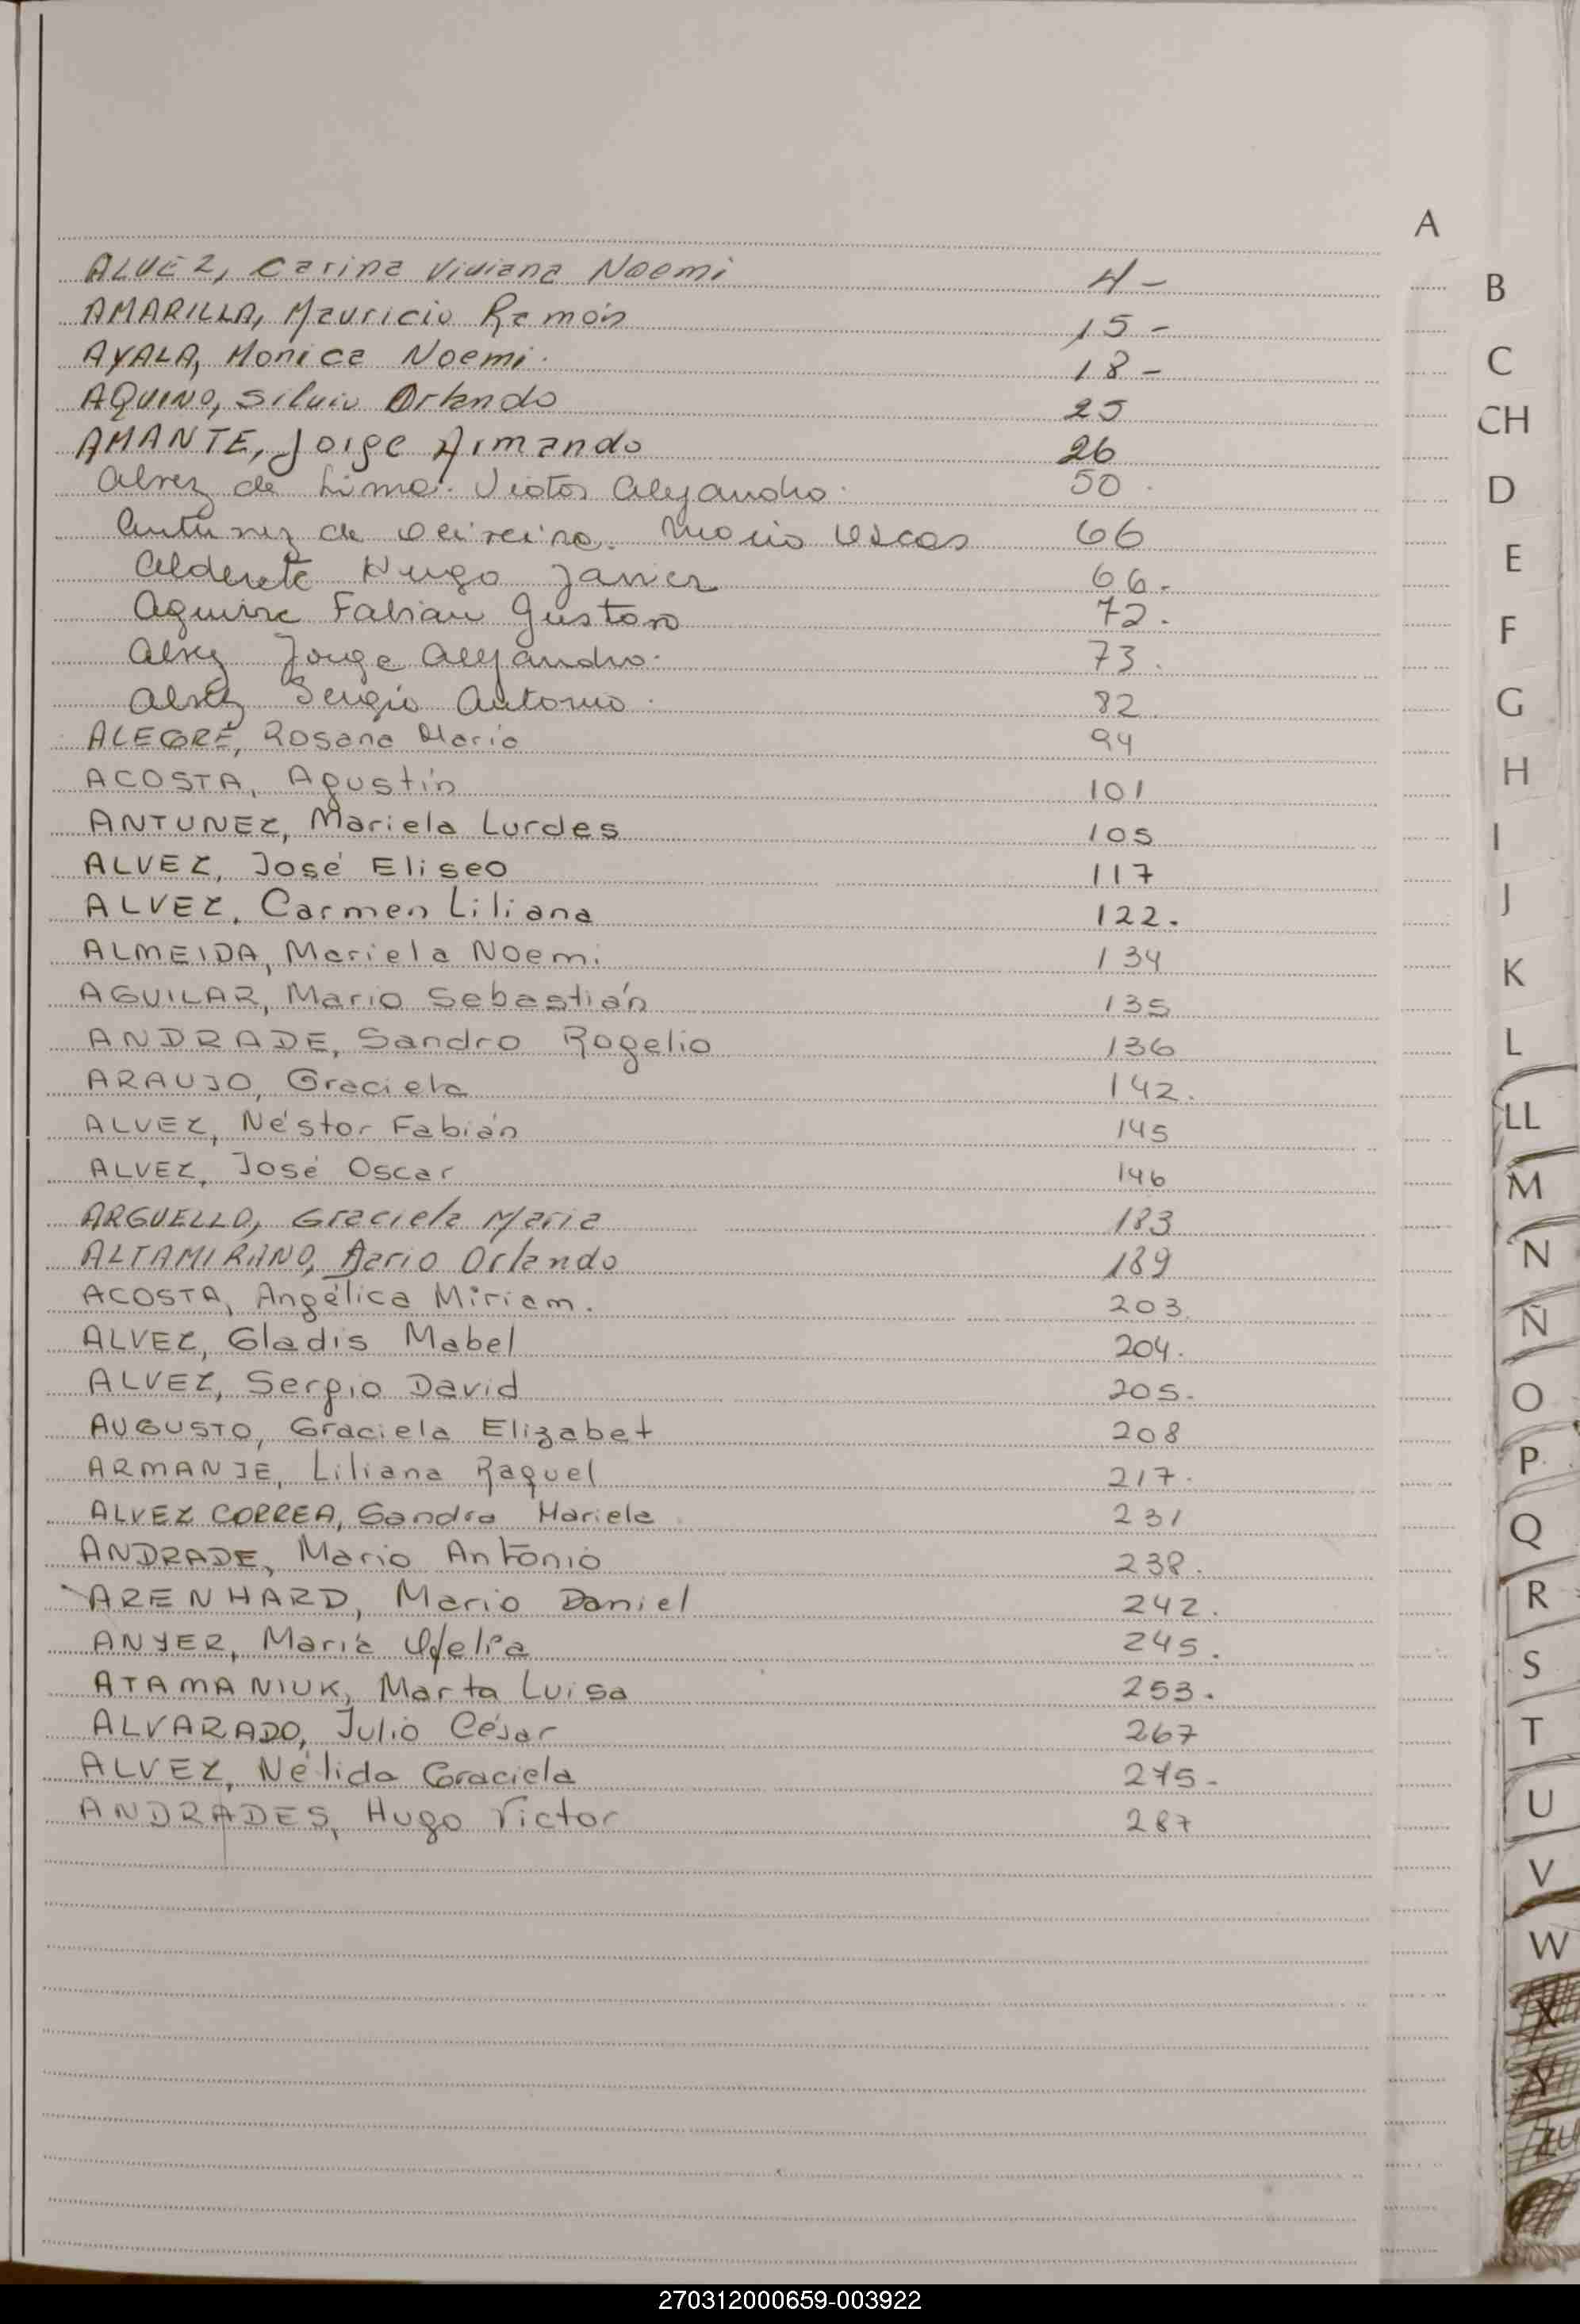 A
ALVEZ, Carina Viviana Noemi 4 -
AMARILLA, Mauricio Ramón 15 -
AYALA, Monica Noemi. 18 -
AQUINO, Silvio Orlando 25
AMANTE, Jorge Armando 26
Alvez de Lima. Victor Alejandro. 50.
Antunez de Oliveira. Mario Oscar 66
Alderete Hugo Javier 66.
Aguirre Fabian Gustavo 72.
Alvez Jorge Alejandro. 73.
Alvez Sergio Antonio. 82.
ALEGRE, Rosana Maria 94
ACOSTA, Agustín 101
ANTUNEZ, Mariela Lurdes 105
ALVEZ, José Eliseo 117
ALVEZ, Carmen Liliana 122.
ALMEIDA, Mariela Noemi 134
AGUILAR, Mario Sebastián 135
ANDRADE, Sandro Rogelio 136
ARAUJO, Graciela 142.
ALVEZ, Néstor Fabián 145
ALVEZ, José Oscar 146
ARGUELLO, Graciela Maria 183
ALTAMIRANO, Dario Orlando 189
ACOSTA, Angélica Miriam. 203.
ALVEZ, Gladis Mabel 204.
ALVEZ, Sergio David 205.
AUGUSTO, Graciela Elizabet 208
ARMANJE, Liliana Raquel 217.
ALVEZ CORREA, Sandra Mariela 231
ANDRADE, Mario Antonio 238.
ARENHARD, Mario Daniel 242.
ANYER, María Ofelia 245.
ATAMANIUK, Marta Luisa 253.
ALVARADO, Julio César 267
ALVEZ, Nélida Graciela 275-
ANDRADES, Hugo Victor 287
B
C
CH
D
E
F
G
H
I
J
K
L
LL
M
N
Ñ
O
P
Q
R
S
T
U
V
W
X
Y
270312000659-003922